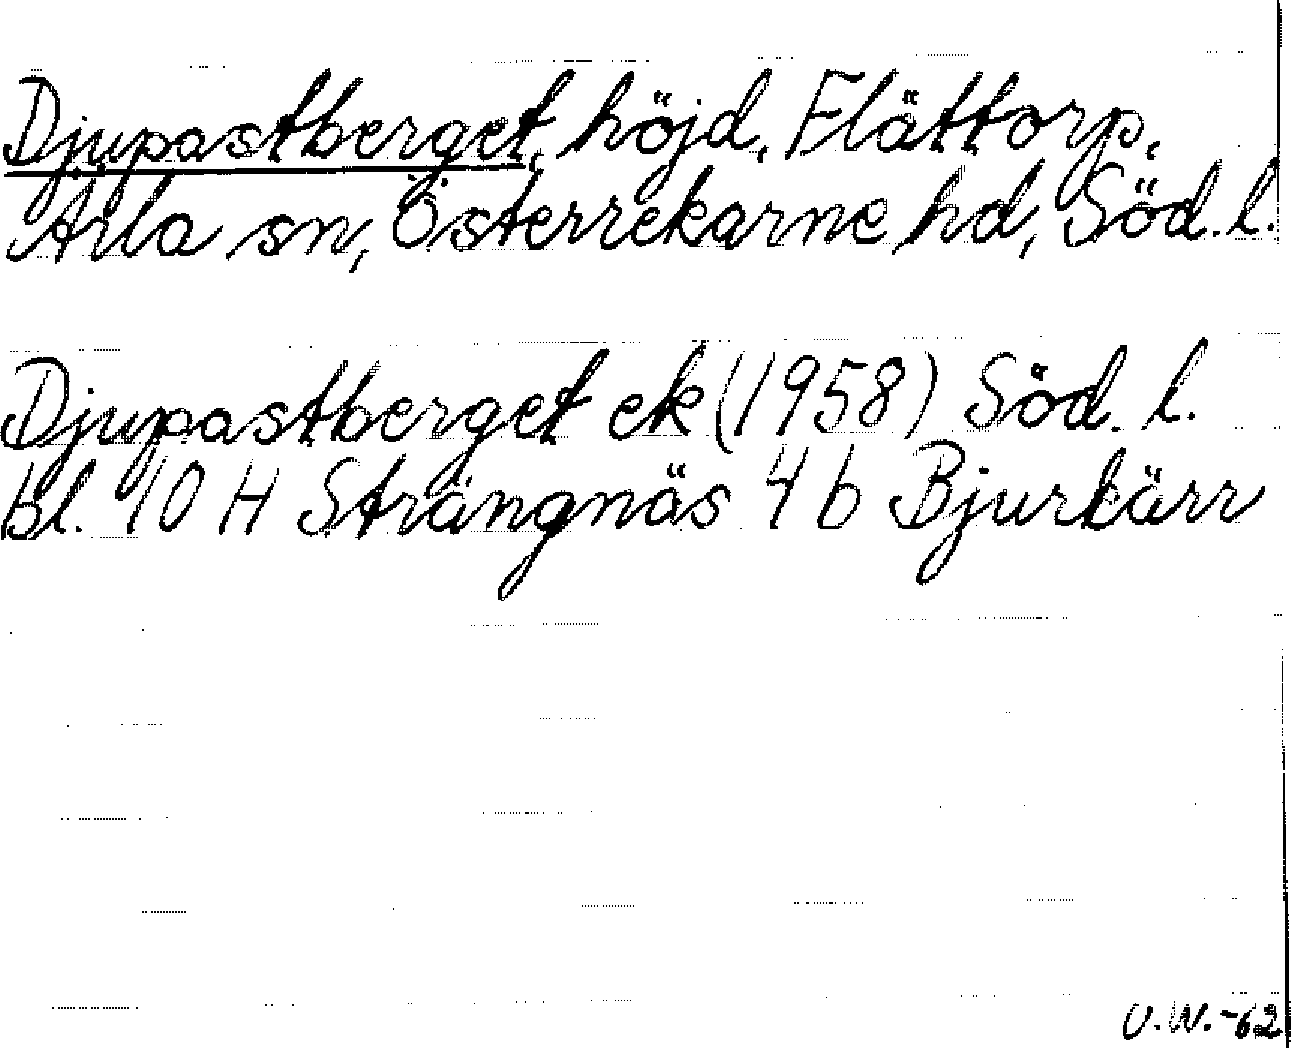 Djupastberget, höjd, Flättorp,
Ärla sn, Österrekarne hd, Söd. l.
Djupastberget ek (1958) Söd. l.
bl. 10 H Strängnäs 4 b Bjurkärr
U.W.-62